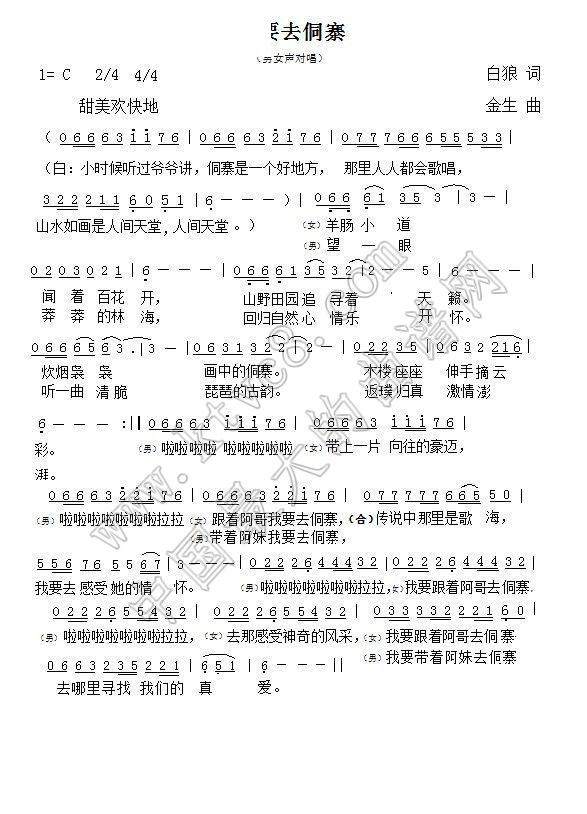 要去侗寨
（男女声对唱）
1= C 2/4 4/4 白狼 词
甜美欢快地 金生 曲
( 0 6 6 6 3 i i 7 6 | 0 6 6 6 3 2 2 1 7 6 | 0 6 7 6 7 6 6 5 5 5 3 3 |
（白：小时候听过爷爷讲，侗寨是一个好地方， 那里人人都会歌唱，
3 2 2 2 1 1 6 0 5 1 | 6 - - - ) | 0 6 6 6 1 3 5 3 | 3 - |
山水如画是人间天堂，人间天堂。） （女）羊肠 小 道
（男）望 一 眼
0 2 0 3 0 2 1 | 6 - - - | 0 6 6 6 6 1 | 3 5 3 2 | 2 - - 5 | 6 - - - |
闻 着 百花 开， 山野田园 追 寻着 天 籁。
莽 莽 的林 海， 回归自然 心 情乐 开 怀。
0 6 6 6 6 5 6 3 . | 3 - | 0 6 3 1 3 2 2 | 2 - | 0 6 6 6 3 2 | 0 3 2 2 1 6 |
炊烟袅 袅 画中的侗寨。 木楼座座 伸手摘云
听一曲 清脆 琵琶的古韵。 返璞归真 激情澎
6 - - - :|| 0 6 6 6 3 i i 7 6 | 0 6 6 6 3 2 2 1 7 6 |
彩。 （男）啦啦啦啦 啦啦啦啦啦 （女）带上一片 向往的豪迈，
湃。
0 6 6 6 3 2 2 1 7 6 | 0 6 6 6 3 2 2 1 7 6 | 0 7 7 7 7 7 7 6 6 5 5 0 |
（男）啦啦啦啦啦啦啦拉拉 （女）跟着阿哥我要去侗寨，（合）传说中那里是歌 海，
（男）带着阿妹我要去侗寨，
5 5 5 7 6 5 5 6 7 | 6 - - - | 0 2 2 6 2 6 4 4 3 2 | 0 2 2 2 6 4 4 3 2 |
我要去 感受 她的情 怀。 （男）啦啦啦啦啦啦啦拉拉，（女）我要跟着阿哥去侗寨.
0 2 2 2 6 5 5 4 3 2 | 0 2 2 2 6 5 5 4 3 2 | 0 3 3 3 3 2 2 2 1 6 0 |
（男）啦啦啦啦啦啦啦拉拉，（女）去那感受神奇的风采，（女）我要跟着阿哥去侗寨
（男）我要带着阿妹去侗寨
0 6 6 6 3 2 3 5 2 2 1 | 6 5 1 | 6 - - - ||
去哪里寻找 我们的 真 爱。
www.ktvc8.com
中国最大的曲谱网